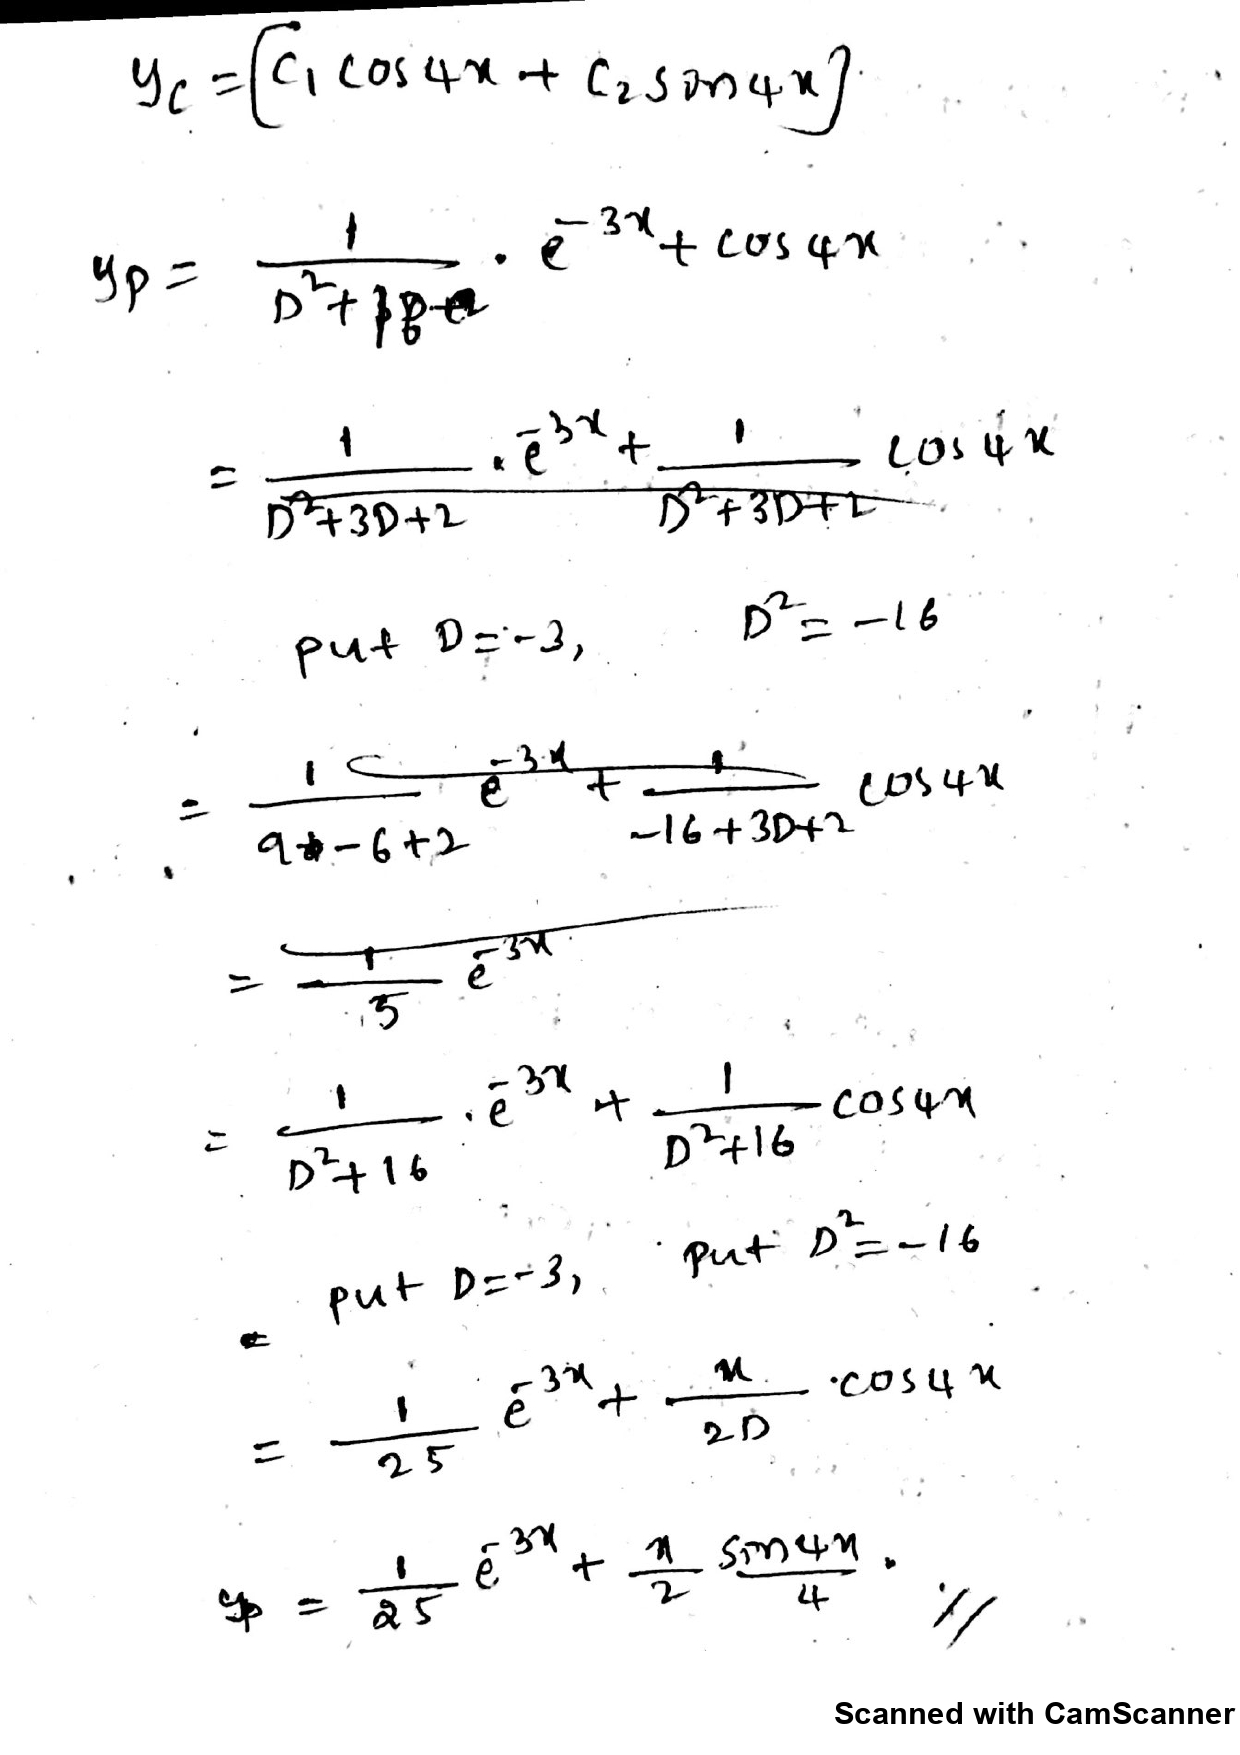 y_c = [C₁ cos4x + C₂ sin4x]
y_p = 1/(D²+16) · e^(-3x) + cos4x
= 1/(D²+3D+2) · e^(-3x) + 1/(D²+3D+2) cos4x
put D=-3, D²=-16
= 1/(9-6+2) e^(-3x) + 1/(-16+3D+2) cos4x
= 1/5 e^(-3x)
= 1/(D²+16) · e^(-3x) + 1/(D²+16) cos4x
put D=-3, put D²=-16
= 1/25 e^(-3x) + x/2D · cos4x
y_p = 1/25 e^(-3x) + x/2 sin4x/4 . //
Scanned with CamScanner